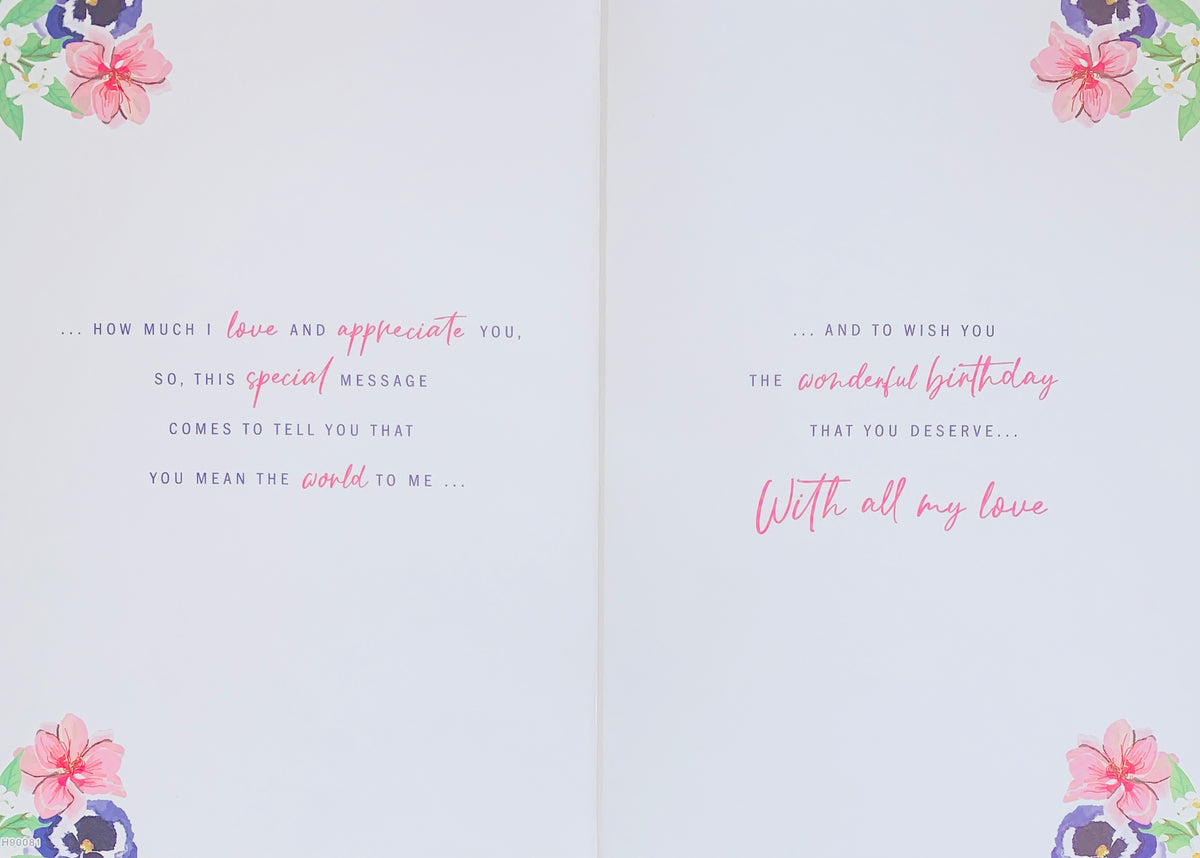 ... HOW MUCH I love AND appreciate YOU,
SO, THIS special MESSAGE
COMES TO TELL YOU THAT
YOU MEAN THE world TO ME ...
... AND TO WISH YOU
THE wonderful birthday
THAT YOU DESERVE...
With all my love
H90081